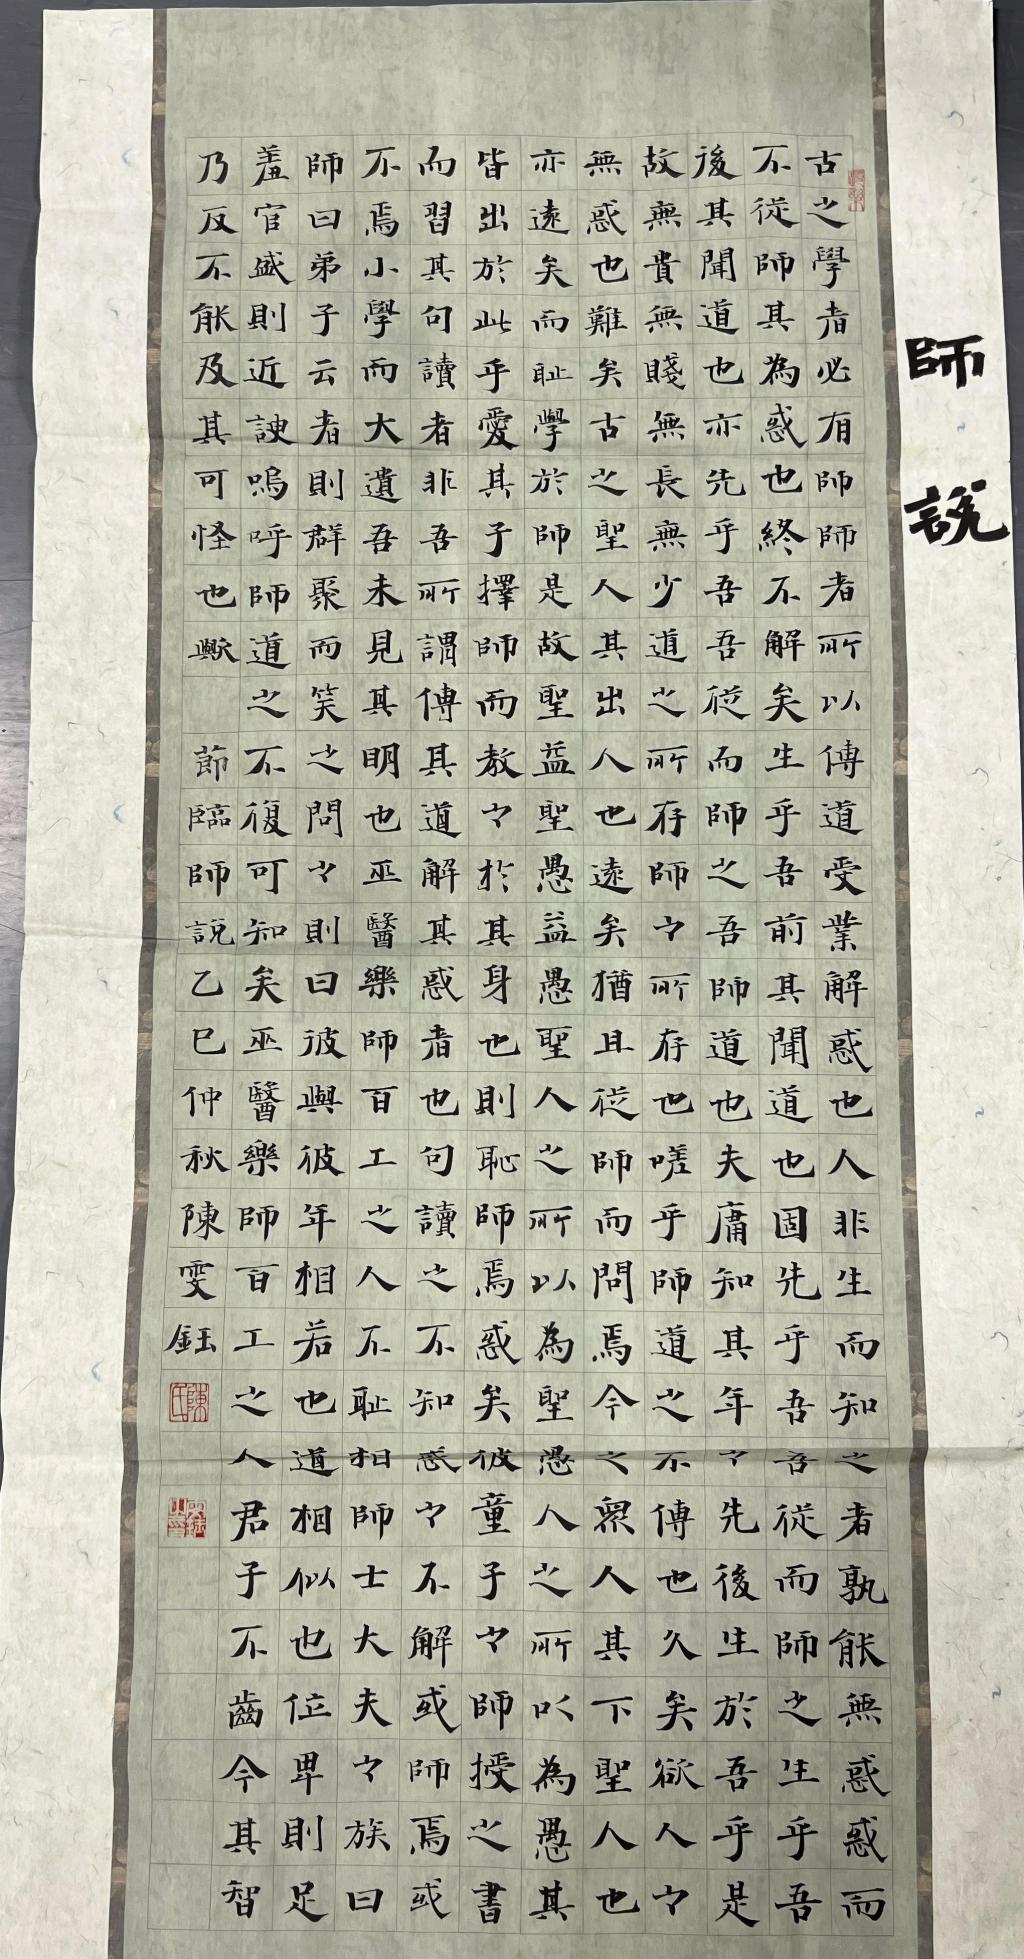 師說
古之學者必有師師者所以傳道受業解惑也人非生而知之者孰能無惑惑而
不從師其為惑也終不解矣生乎吾前其聞道也固先乎吾吾從而師之生乎吾
後其聞道也亦先乎吾吾從而師之吾師道也夫庸知其年々先後生於吾乎是
故無貴無賤無長無少道之所存師々所存也嗟乎師道之不傳也久矣欲人々
無惑也難矣古之聖人其出人也遠矣猶且從師而問焉今之眾人其下聖人也
亦遠矣而耻學於師是故聖益聖愚益愚聖人之所以為聖愚人之所以為愚其
皆出於此乎愛其子擇師而教々於其身也則恥師焉惑矣彼童子々師授之書
而習其句讀者非吾所謂傳其道解其惑者也句讀之不知惑々不解或師焉或
不焉小學而大遺吾未見其明也巫醫樂師百工之人不耻相師士大夫々族曰
師曰弟子云者則群聚而笑之問々則曰彼與彼年相若也道相似也位卑則足
羞官盛則近諛嗚呼師道之不復可知矣巫醫樂師百工之人君子不齒今其智
乃反不能及其可怪也歟 節臨師說乙巳仲秋陳雯鈺
陳氏